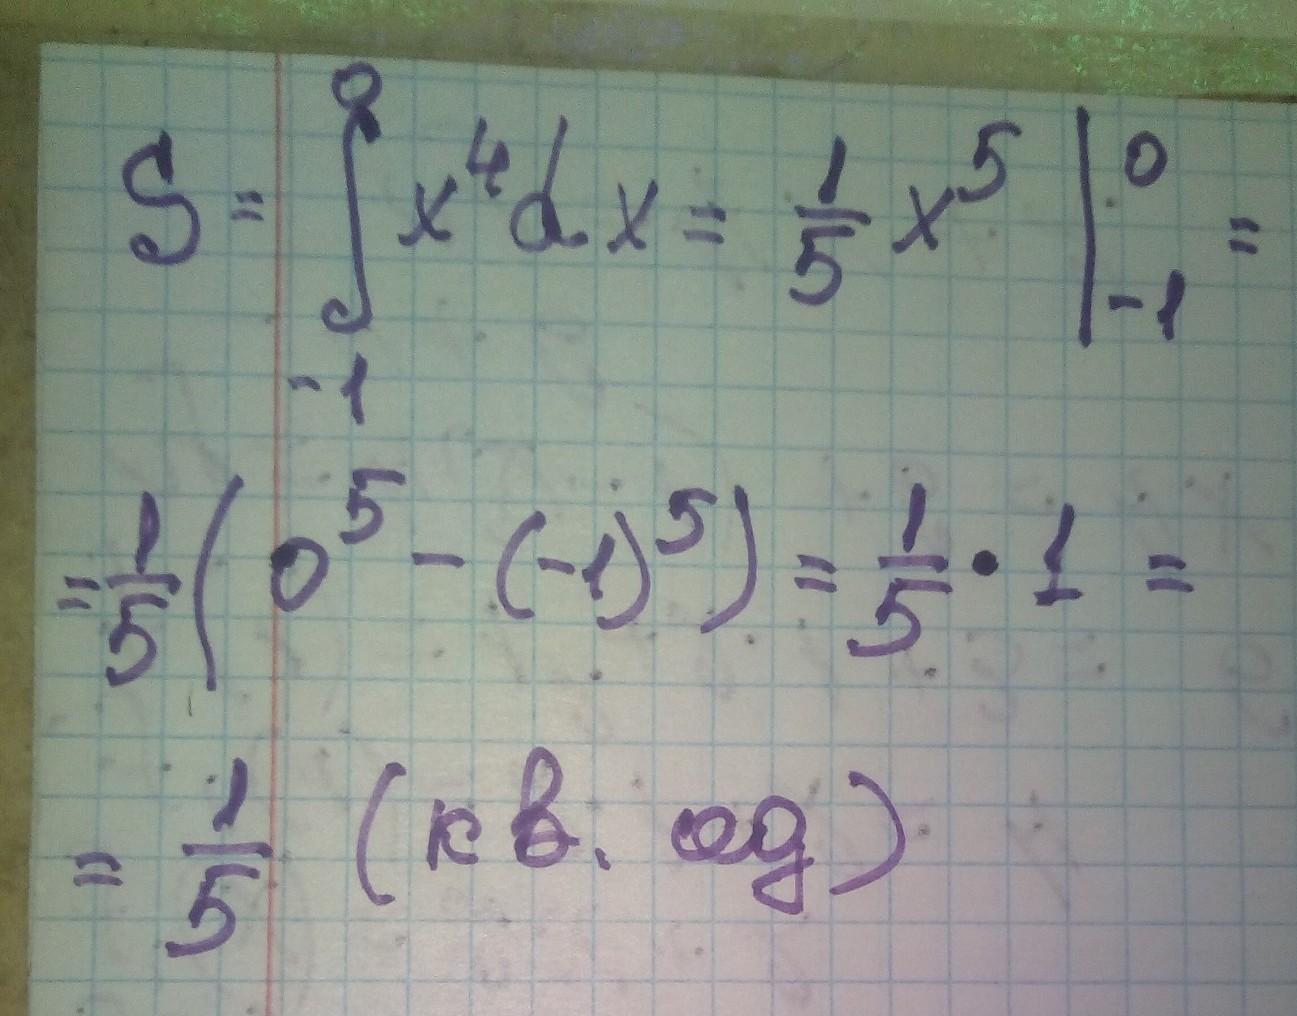 S = ∫₋₁⁰ x⁴ dx = 1/5 x⁵ |₋₁⁰ =
= 1/5 (0⁵ - (-1)⁵) = 1/5 • 1 =
= 1/5 (кв. од)